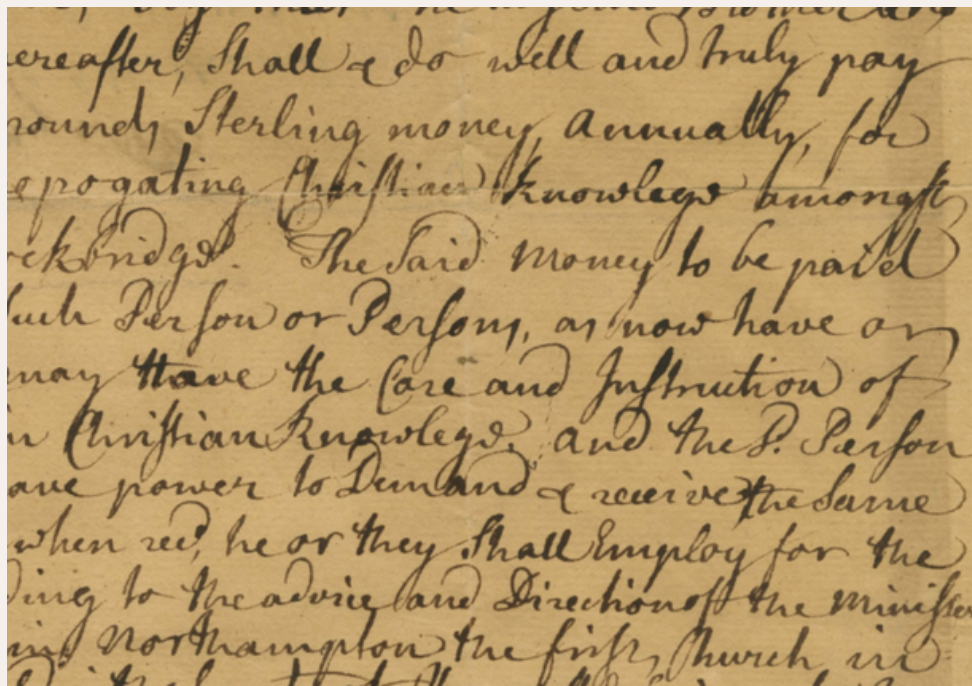 ereafter, Shall & do well and truly pay
pounds Sterling money, annually, for
propogating Christian Knowlege amongst
ckbridge. The Said money to be paid
Such Person or Persons, as now have or
may have the Care and Instruction of
in Christian Knowlege, and the S. Person
ave power to Demand & receive the Same
when recd, he or they Shall Employ for the
ding to the advice and Direction of the minister
in Northampton the first Church in